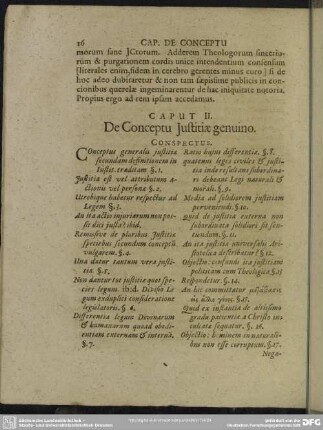 16 CAP. DE CONCEPTU
morum sane JCtorum. Adderem Theologorum sinceria-
rum & purgationem cordis unice intendentium consensum
(literales enim, fidem in cerebro gerentes minus curo) si de
hoc adeo dubitaretur & non tam sæpissime publicis in con-
cionibus querelæ ingeminarentur de hac iniquitate notoria.
Propius ergo ad rem ipsam accedamus.
CAPUT II.
De Conceptu Justitiæ genuino.
CONSPECTUS.
Conceptus generalis justitiæ
secundum definitionem in
Instit. traditam §. 1.
Justitia est vel attributum a-
ctionis vel personæ §. 2.
Utrobique habetur respectus ad
Legem §. 3.
An ita actio injuriarum non pos-
sit dici justa? ibid.
Remissive de pluribus Justitiæ
speciebus secundum conceptū
vulgarem. §. 4.
Una datur tantum vera justi-
tia. §. 5.
Non dantur tot justitiæ quot spe-
cies legum. ibid. Divisio Le-
gum exduplici consideratione
legislatoris. §. 6.
Differentia legum Divinarum
& humanarum quoad obedi-
entiam externam & internā.
§. 7.
Ratio hujus differentiæ. §. 8.
quatenus leges civiles & justi-
tia inde resultans subordina-
ri debeant Legi naturali &
morali. §. 9.
Media ad solidiorem justitiam
perveniendi. §. 10.
quid de justitia externa non
subordinata solidiori sit sen-
tiendum. §. 11.
An ita justitia universalis Ari-
stotelica destribatur? §. 12.
Objectio: confundis ita justitiam
politicam cum Theologica §. 13
Respondetur. §. 14.
An hic committatur
εἰς ἄλλο γένος. §. 15.
Quid ex instantia de altissimo
gradu patientiæ a Christo in-
culcato sequatur. §. 16.
Objectio: hominem in naturali-
bus non esse corruptum. §. 17.
Nega-